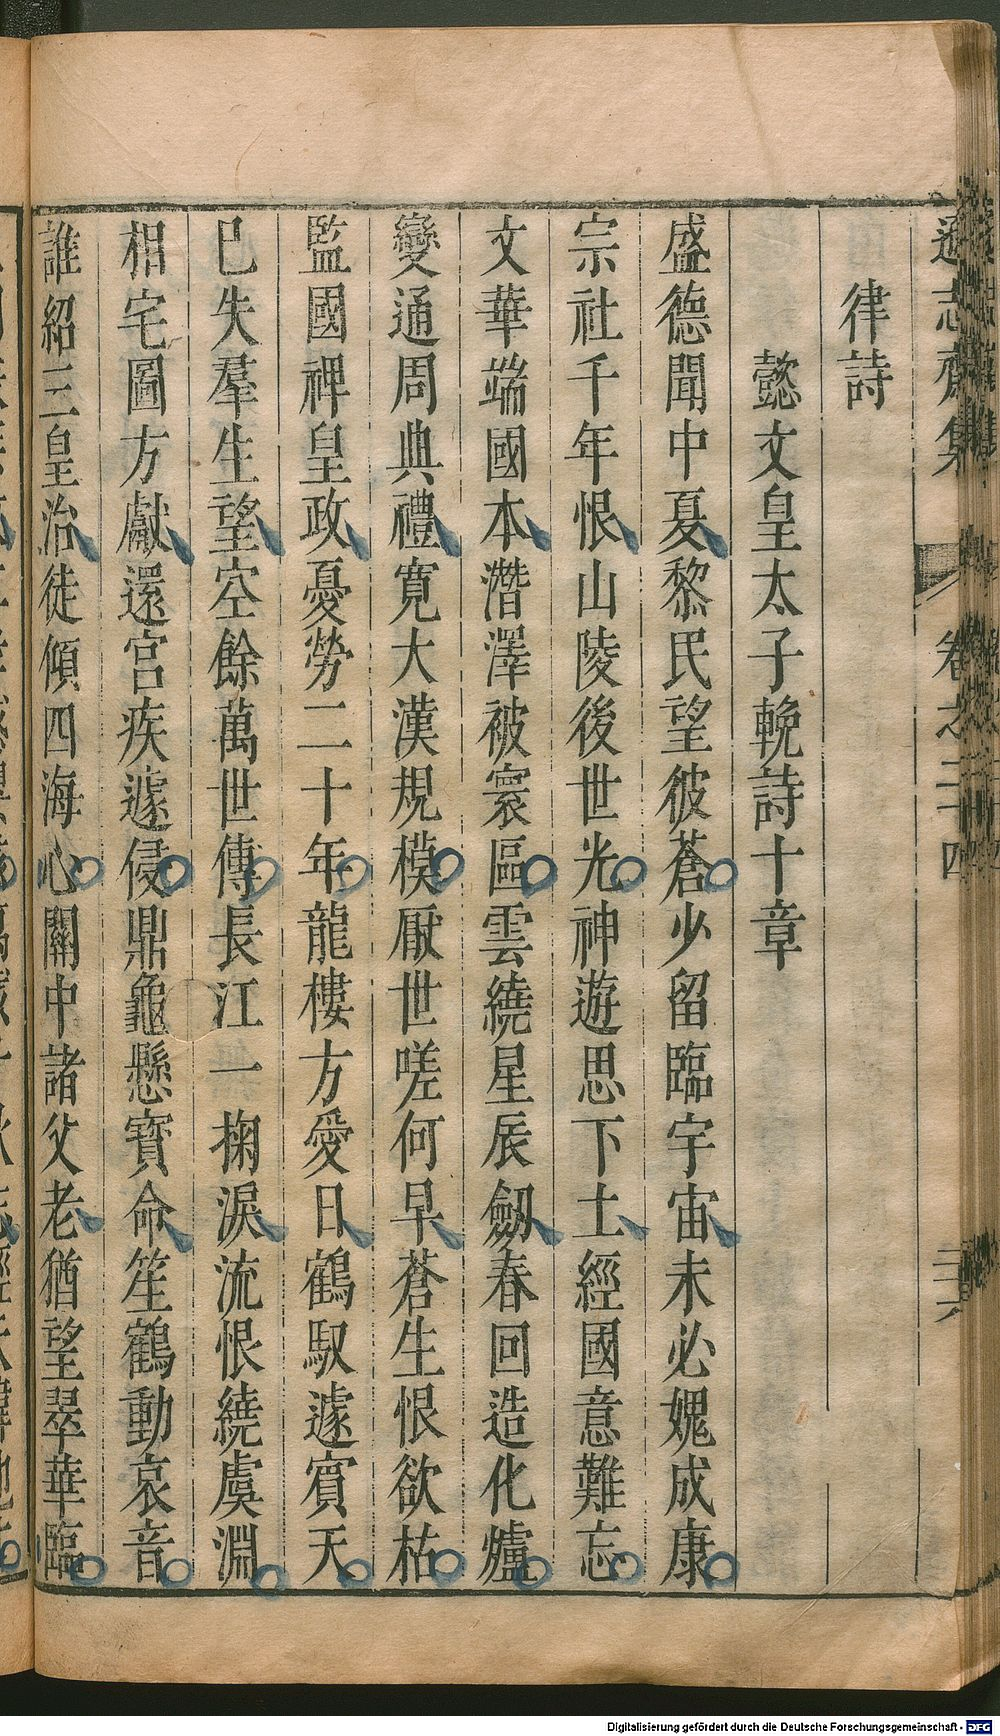 遜志齋集 卷之二十四
律詩
懿文皇太子輓詩十章
盛德聞中夏黎民望彼蒼少留臨宇宙未必媿成康
宗社千年恨山陵後世光神遊思下土經國意難忘
文華端國本潛澤被寰區雲繞星辰劒春回造化爐
變通周典禮寬大漢規模厭世嗟何早蒼生恨欲枯
監國裨皇政憂勞二十年龍樓方愛日鶴馭遽賓天
已失羣生望空餘萬世傳長江一掬淚流恨繞虞淵
相宅圖方獻還宮疾遽侵鼎龜懸寶命笙鶴動哀音
誰紹三皇治徒傾四海心關中諸父老猶望翠華臨
Digitalisierung gefördert durch die Deutsche Forschungsgemeinschaft - DFG